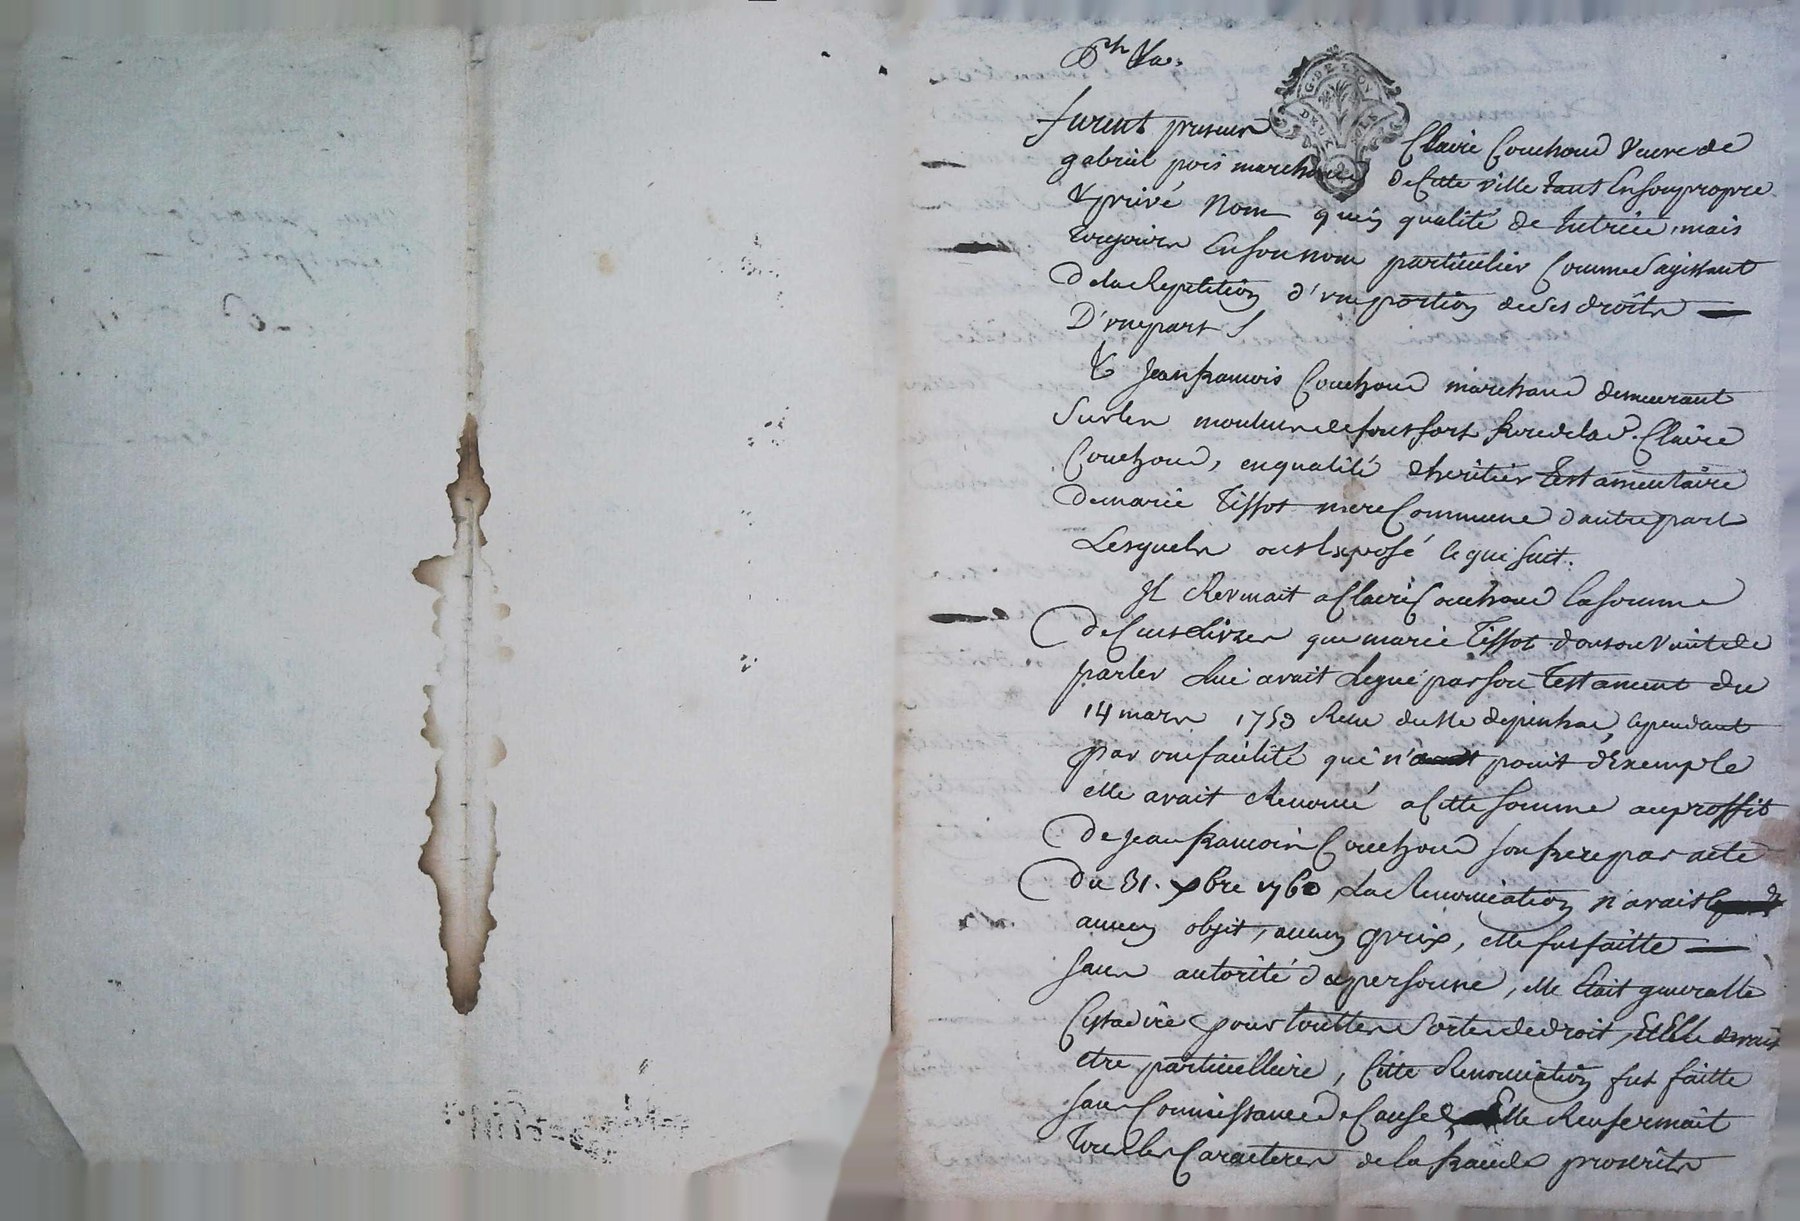 G. DE LYON
DEUX
furent presens Claire Couchoud veuve de
gabriel pois marchand de Cette ville tant En son propre
& privé nom qu'en qualité de tutrice, mais
toujours En son nom particulier Comme s'agissant
de la Repetition d'une portion de ses droits
D'une part
& Jean francois Couchoud marchand demeurant
sur les moulins de fontfort frere de lad. Claire
Couchoud, en qualité d'heritier testamentaire
de marie Tissot mere Commune d'autre part
Lesquels ont Exposé le qui suit.
Il Revenait a Claire Couchoud la somme
de Cens Livres que marie Tissot dont on vient de
parler Lui avait Legué par son testament du
14 mars 1753 Recu du Me depinhac, cependant
par une facilité qui n'a point d'Exemple
elle avait Renoncé a Cette somme au proffit
de jean francois Couchoud son frere par acte
du 31. xbre 1760, La Renonciation n'avait
aucun objet, aucun prix, elle fut faitte
sans autorité de personne, elle Etait generalle
C'est a dire pour touttes sortes de droit, Et Elle devait
etre particulliere, Cette Renonciation fut faitte
sans Connoissance de Cause Elle Renfermait
tous les Caracteres de la fraude proscrits